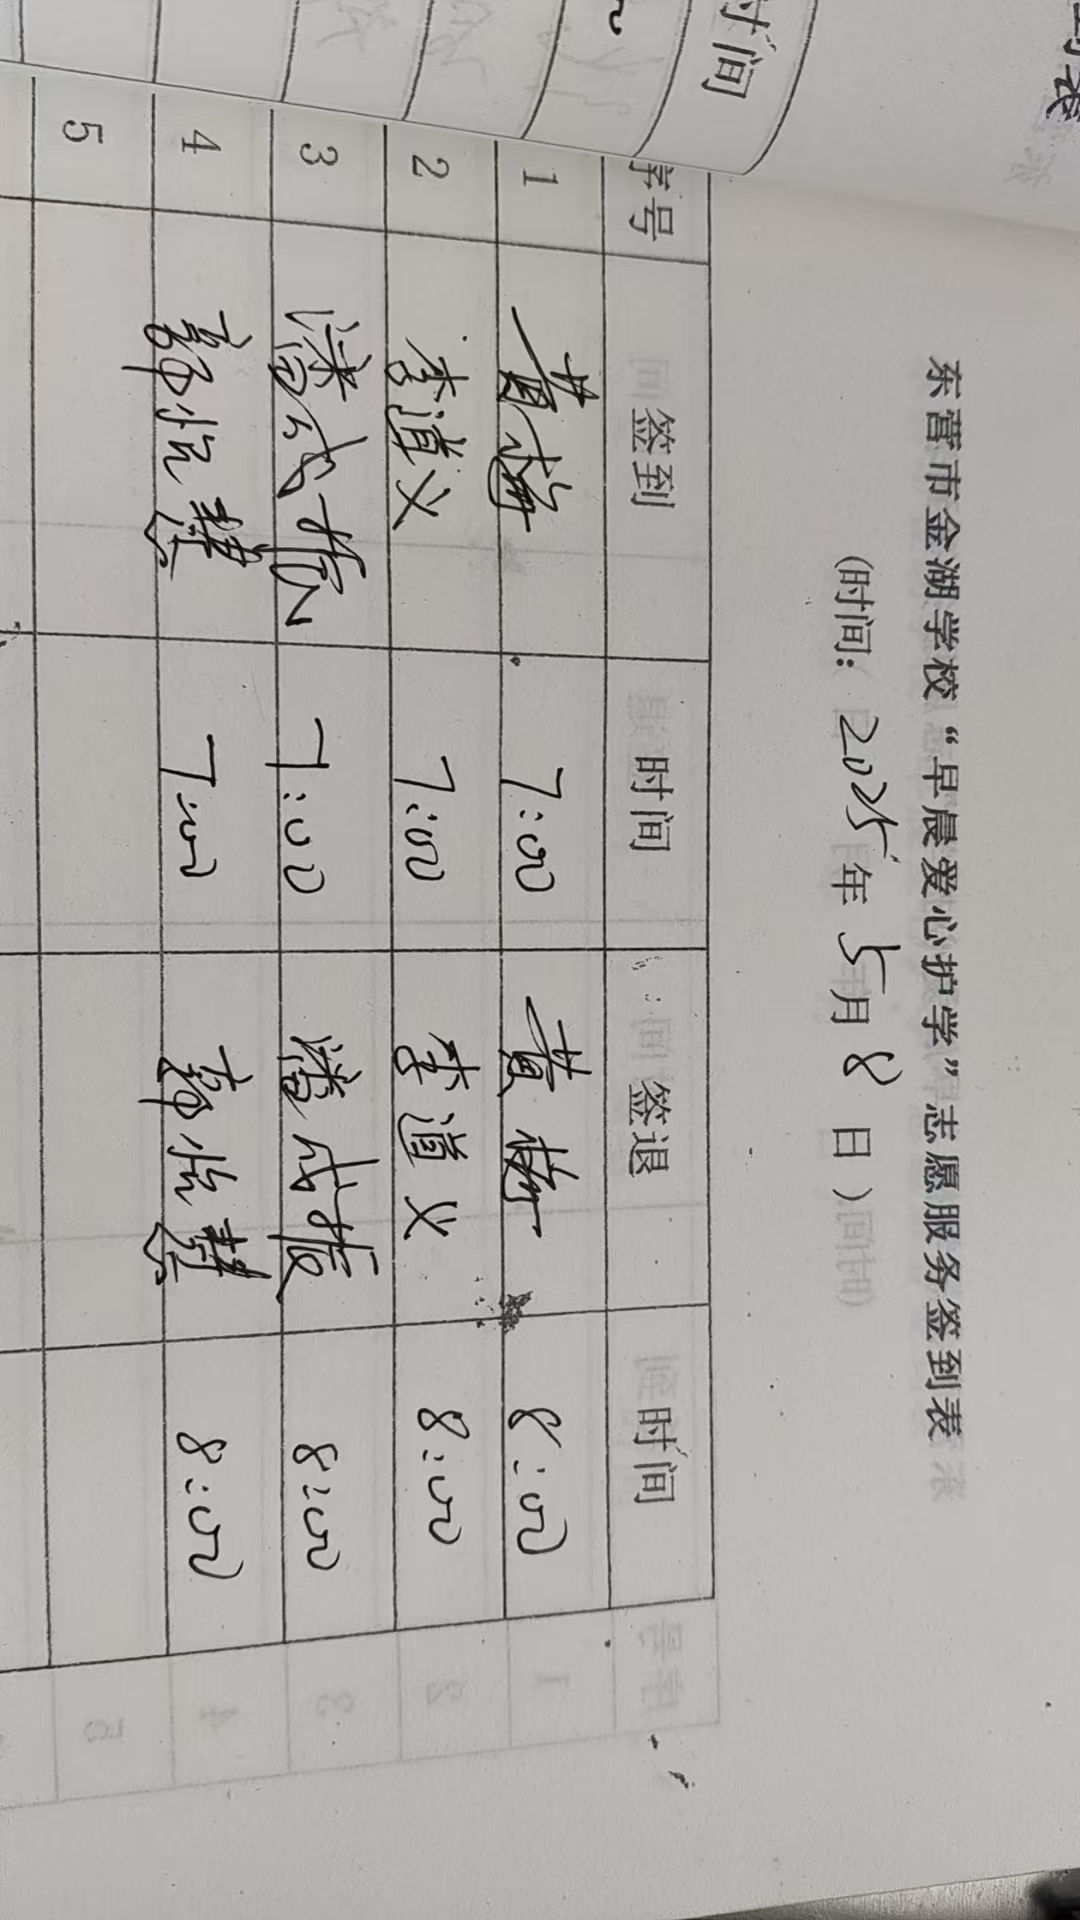 东营市金湖学校“早晨爱心护学”志愿服务签到表
(时间: 2025年 5月 8 日)
序号 签到 时间 签退 时间
1 黄梅 7:00 黄梅 8:00
2 李道义 7:00 李道义 8:00
3 潘成振 7:00 潘成振 8:00
4 郭怡慧 7:00 郭怡慧 8:00
5
时间
到表